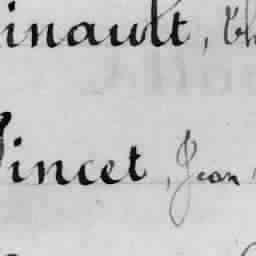 inault, Th
Vincet, Jean